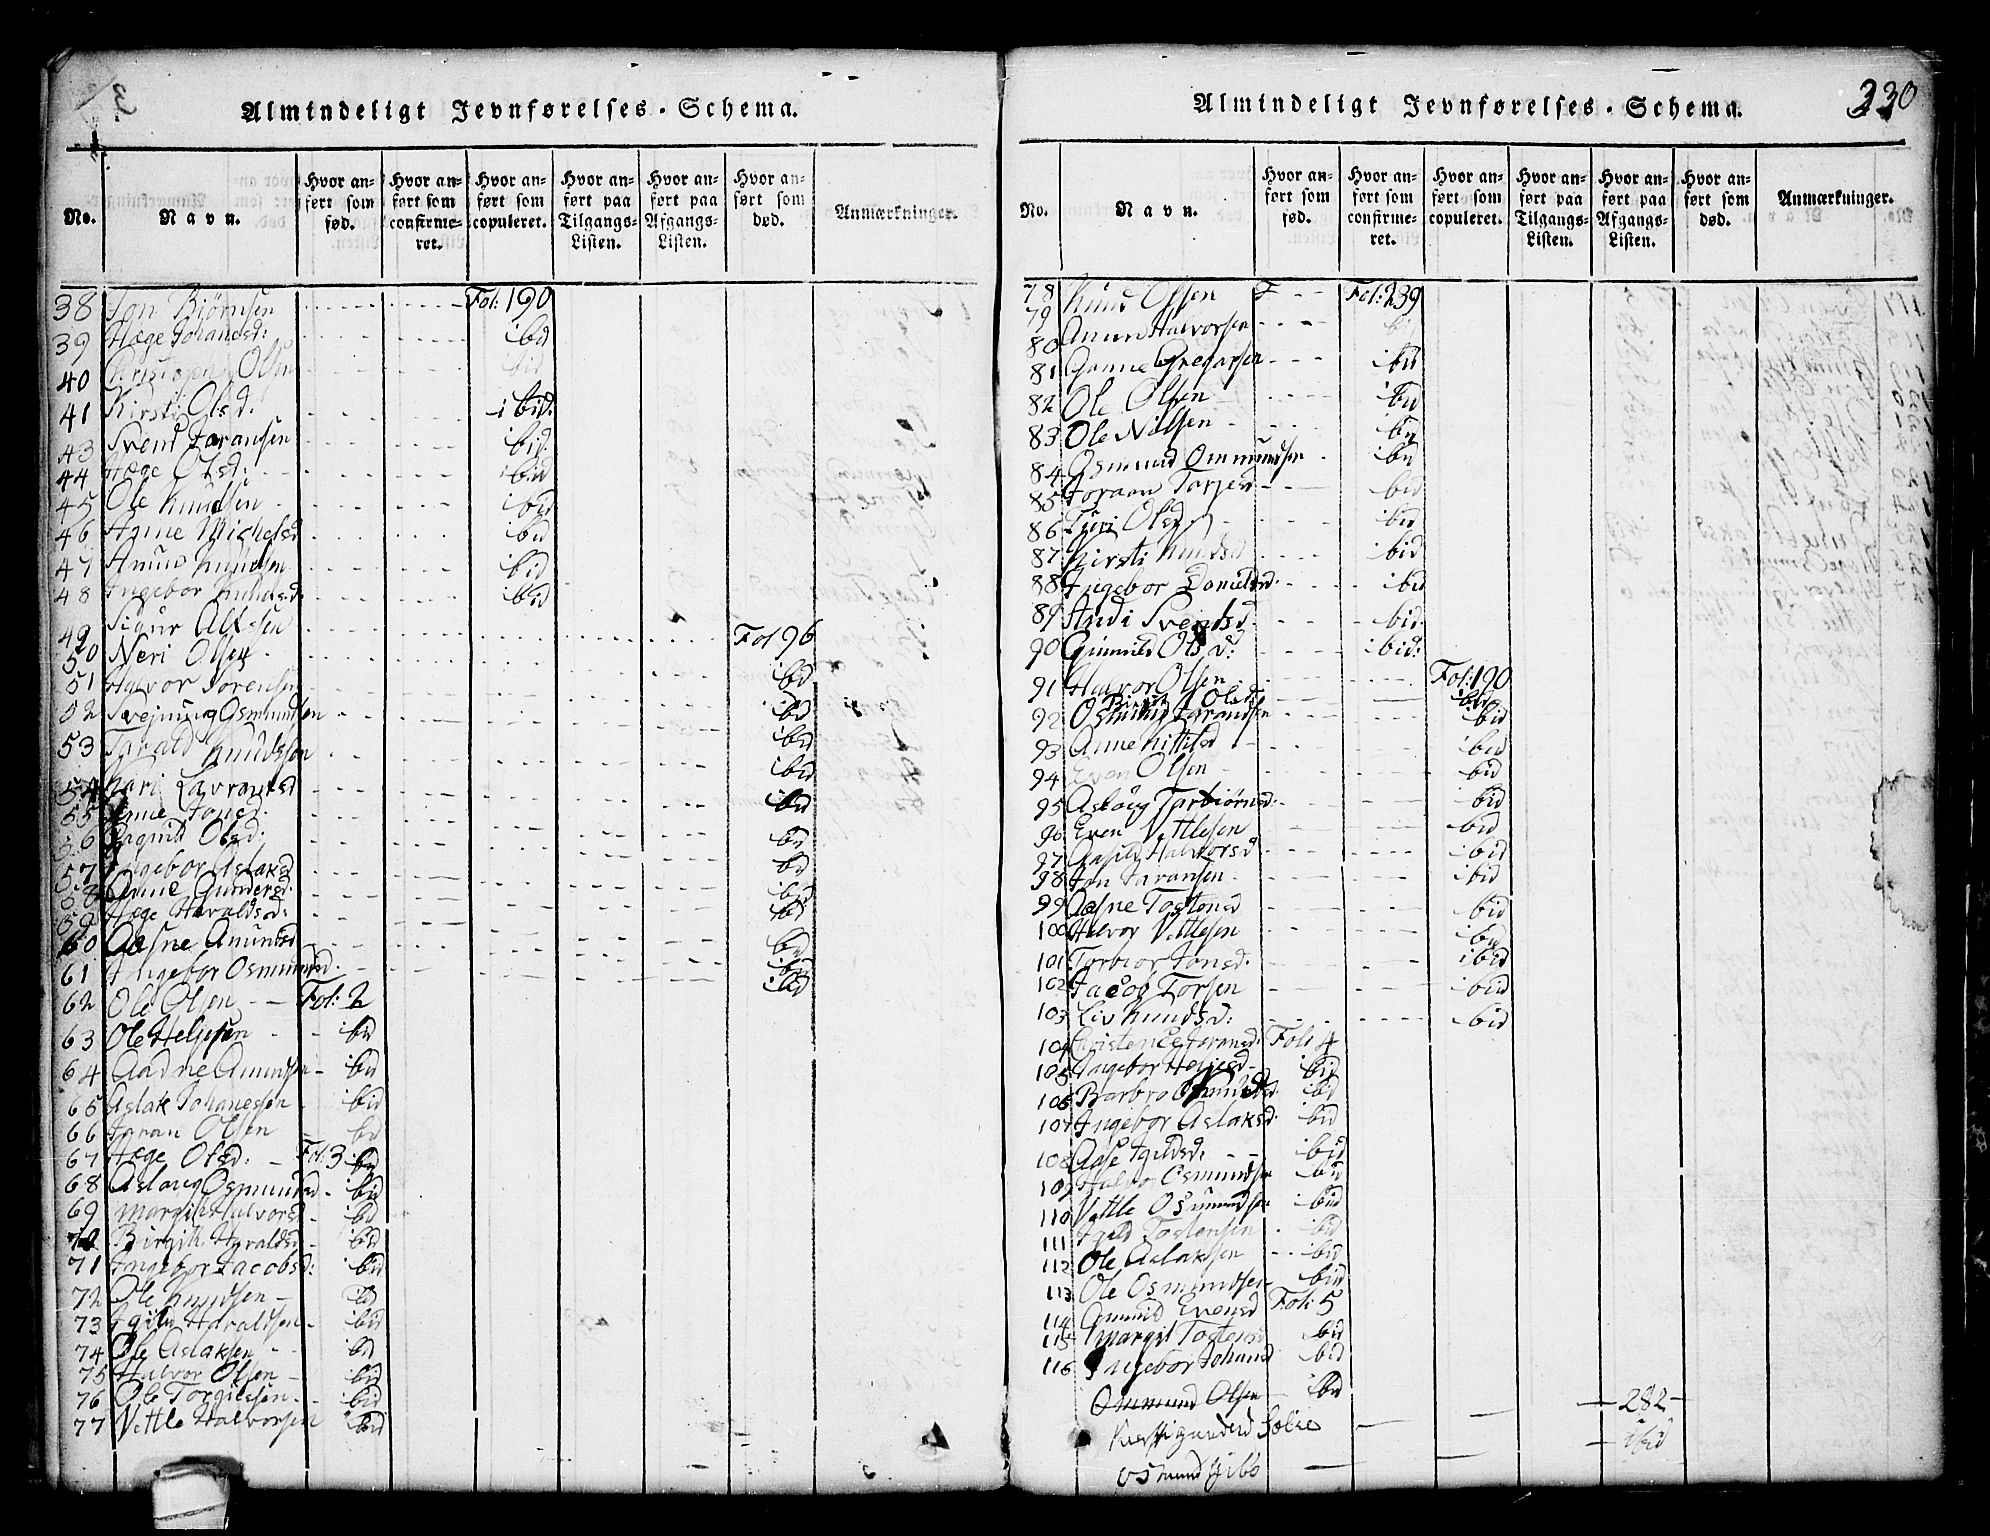 Almindeligt Jevnførelses-Schema.
No. Navn. Hvor anført som fød. Hvor anført som confirmeret. Hvor anført som copuleret. Hvor anført paa Tilgangs-Listen. Hvor anført paa Afgangs-Listen. Hvor anført som død. Anmærkninger.
38 Jon Biørnsen Fol: 190
39 Hæge Johansd: ibd
40 Olsen ibid
41 Kirsti Olsd: ibid:
43 Svend Jøransen ibid.
44 Hæge Olsd: ibid
45 Ole Knudsen ibid
46 Anne Michelsd ibid
47 Knudsen ibid
48 Ingebor Knudsd: ibid
49 Sigur Olsen Fol 96
50 Neri Olsen ibd
51 Halvor Sørensen ibd
52 Svejnung Osmundsen ibd
53 Tarald Knudssøn ibd
54 Kari Lavrantsd ibd
55 Anne Jonsd: ibd
56 Olsd: ibd
57 Ingebor Aslaksd ibd
58 Anne Gundersd: ibd
59 Hæge Haraldsd: ibd
60 Aasne Anundsd ibd
61 Ingebor Osmundsd: ibd
62 Ole Olsen Fol: 2
63 Ole Heljesen ibd
64 Aadne Amundsen ibid
65 Aslak Johanessen ibid
66 Jøran Olsen ibid
67 Hæge Olsd: Fol: 3 ibd
68 Aslaug Osmundsd ibid
69 Margit Halvorsd ibd
70 Birgit Haraldsd ibid
71 Ingebor Jacobsd: ibid
72 Ole Knudsen ibd
73 Haraldsen ibid
74 Ole Aslaksen ibd
75 Halvor Olsen ibid
76 Ole Torgilssen ibid
77 Vettle Halvorsen ibid
Almindeligt Jevnførelses-Schema. 330
No. Navn. Hvor anført som fød. Hvor anført som confirmeret. Hvor anført som copuleret. Hvor anført paa Tilgangs-Listen. Hvor anført paa Afgangs-Listen. Hvor anført som død. Anmærkninger.
78 Knud Olsen Fol: 239
79 Halvorsen ibid
80 Gregarsen ibid
81 Ole Olsen ibid
82 Ole Nilsen ibd
83 Osmund Ommundsen ibd
84 Joraan Tarjesd ibid
85 Olsd ibid
86 Kirsti Knudsd ibid
87 Ingebor Danielsd: ibd
88 Svendsd ibid
89 Gunnild Olsd: ibid:
90 Halvor Olsen Fol: 190
91 Birgit Olsd: ibid
92 Osmund Jørandsen ibid
93 Anne Kittilsd ibd
94 Even Olsen ibid
95 Aslaug Torbiørnsd: ibid
96 Even Vettlesen ibid
97 Halvorsd ibid
98 Jon Jøransen ibid
99 Aasne Tostensd ibid
100 Halvor Vettlesen ibid
101 Torbior Jonsd: ibid
102 Jacob Torsen ibid
103 Liv Knudsd: ibid
104 Christence Jøransd: Fol: 4
105 Ingebor Heljesd ibid
106 Barbro ibd
107 Ingebor Aslaksd: ibid
108 Aase ibid
109 Halvor Osmundsen ibid
110 Vettle Osmundsen ibid
111 Tostensen ibid
112 Ole Aslaksen ibid
113 Ole Osmundsen ibid
114 Evensd Fol: 5
115 Margit Tostensd ibid
116 Ingebor Johansd ibid
Ommund Olsen ibd 282
ibid
Osmund